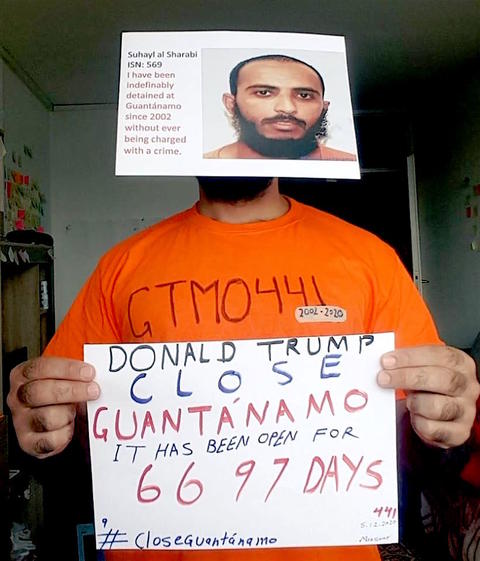 Suhayl al Sharabi
ISN: 569
I have been
indefinably
detained at
Guantánamo
since 2002
without ever
being charged
with a crime.
GTMO441
2002-2020
DONALD TRUMP
CLOSE
GUANTÁNAMO
IT HAS BEEN OPEN FOR
6697 DAYS
441
5.12.2020
#CloseGuantánamo